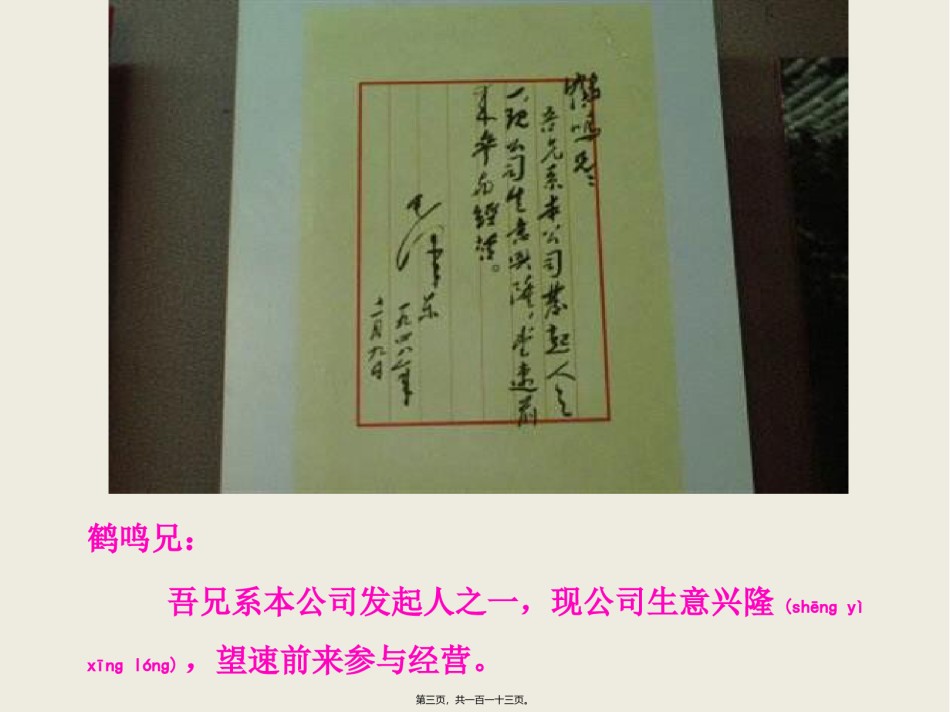 鹤鸣兄：
吾兄系本公司发起人之
一，现公司生意兴隆，望速前
来参与经营。
毛泽东
一九四八年
十一月九日
鹤鸣兄：
吾兄系本公司发起人之一，现公司生意兴隆（shēng yì
xīng lóng），望速前来参与经营。
第三页，共一百一十三页。